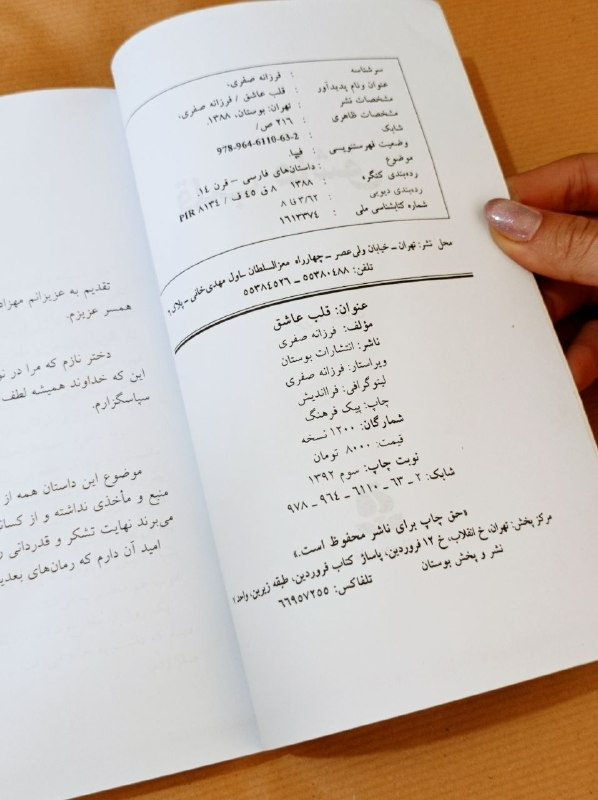 سرشناسه : فرزانه صفری،
عنوان ونام پدیدآور : قلب عاشق / فرزانه صفری،
مشخصات نشر : تهران: بوستان، ۱۳۸۸.
مشخصات ظاهری : ۲۱۶ ص/
شابک : 978-964-6110-63-2
وضعیت فهرستنویسی : فیپا.
موضوع : داستان‌های فارسی – قرن ۱۴.
رده‌بندی کنگره : ۱۳۸۸ ۸ ق ۴۵ ف / PIR ۸۱۳۴
رده‌بندی دیویی : ۳/۶۲ تا ۸
شماره کتابشناسی ملی : ۱۶۱۳۳۷۴
محل نشر: تهران – خیابان ولی عصر – چهارراه معزالسلطان – اول مهدی‌خانی – پلاک ۲
تلفن: ۵۵۳۸۰۴۸۸ – ۵۵۳۸۴۵۲۶
عنوان: قلب عاشق
مؤلف: فرزانه صفری
ناشر: انتشارات بوستان
ویراستار: فرزانه صفری
لیتوگرافی: فرااندیش
چاپ: پیک فرهنگ
شمارگان: ۱۲۰۰ نسخه
قیمت: ۸۰۰۰ تومان
نوبت چاپ: سوم ۱۳۹۲
شابک: ۲ – ۶۳ – ۶۱۱۰ – ۹۶۴ – ۹۷۸
«حق چاپ برای ناشر محفوظ است.»
مرکز پخش: تهران، خ انقلاب، خ ۱۲ فروردین، پاساژ کتاب فروردین، طبقه زیرین، واحد ۲
نشر و پخش بوستان تلفاکس: ۶۶۹۵۷۲۵۵
تقدیم به عزیزانم مهراد
همسر عزیزم.
دختر نازم که مرا در
این که خداوند همیشه لطف
سپاسگزارم.
موضوع این داستان همه از
منبع و مأخذی نداشته و از
می‌برند نهایت تشکر و قدردانی
امید آن دارم که رمان‌های